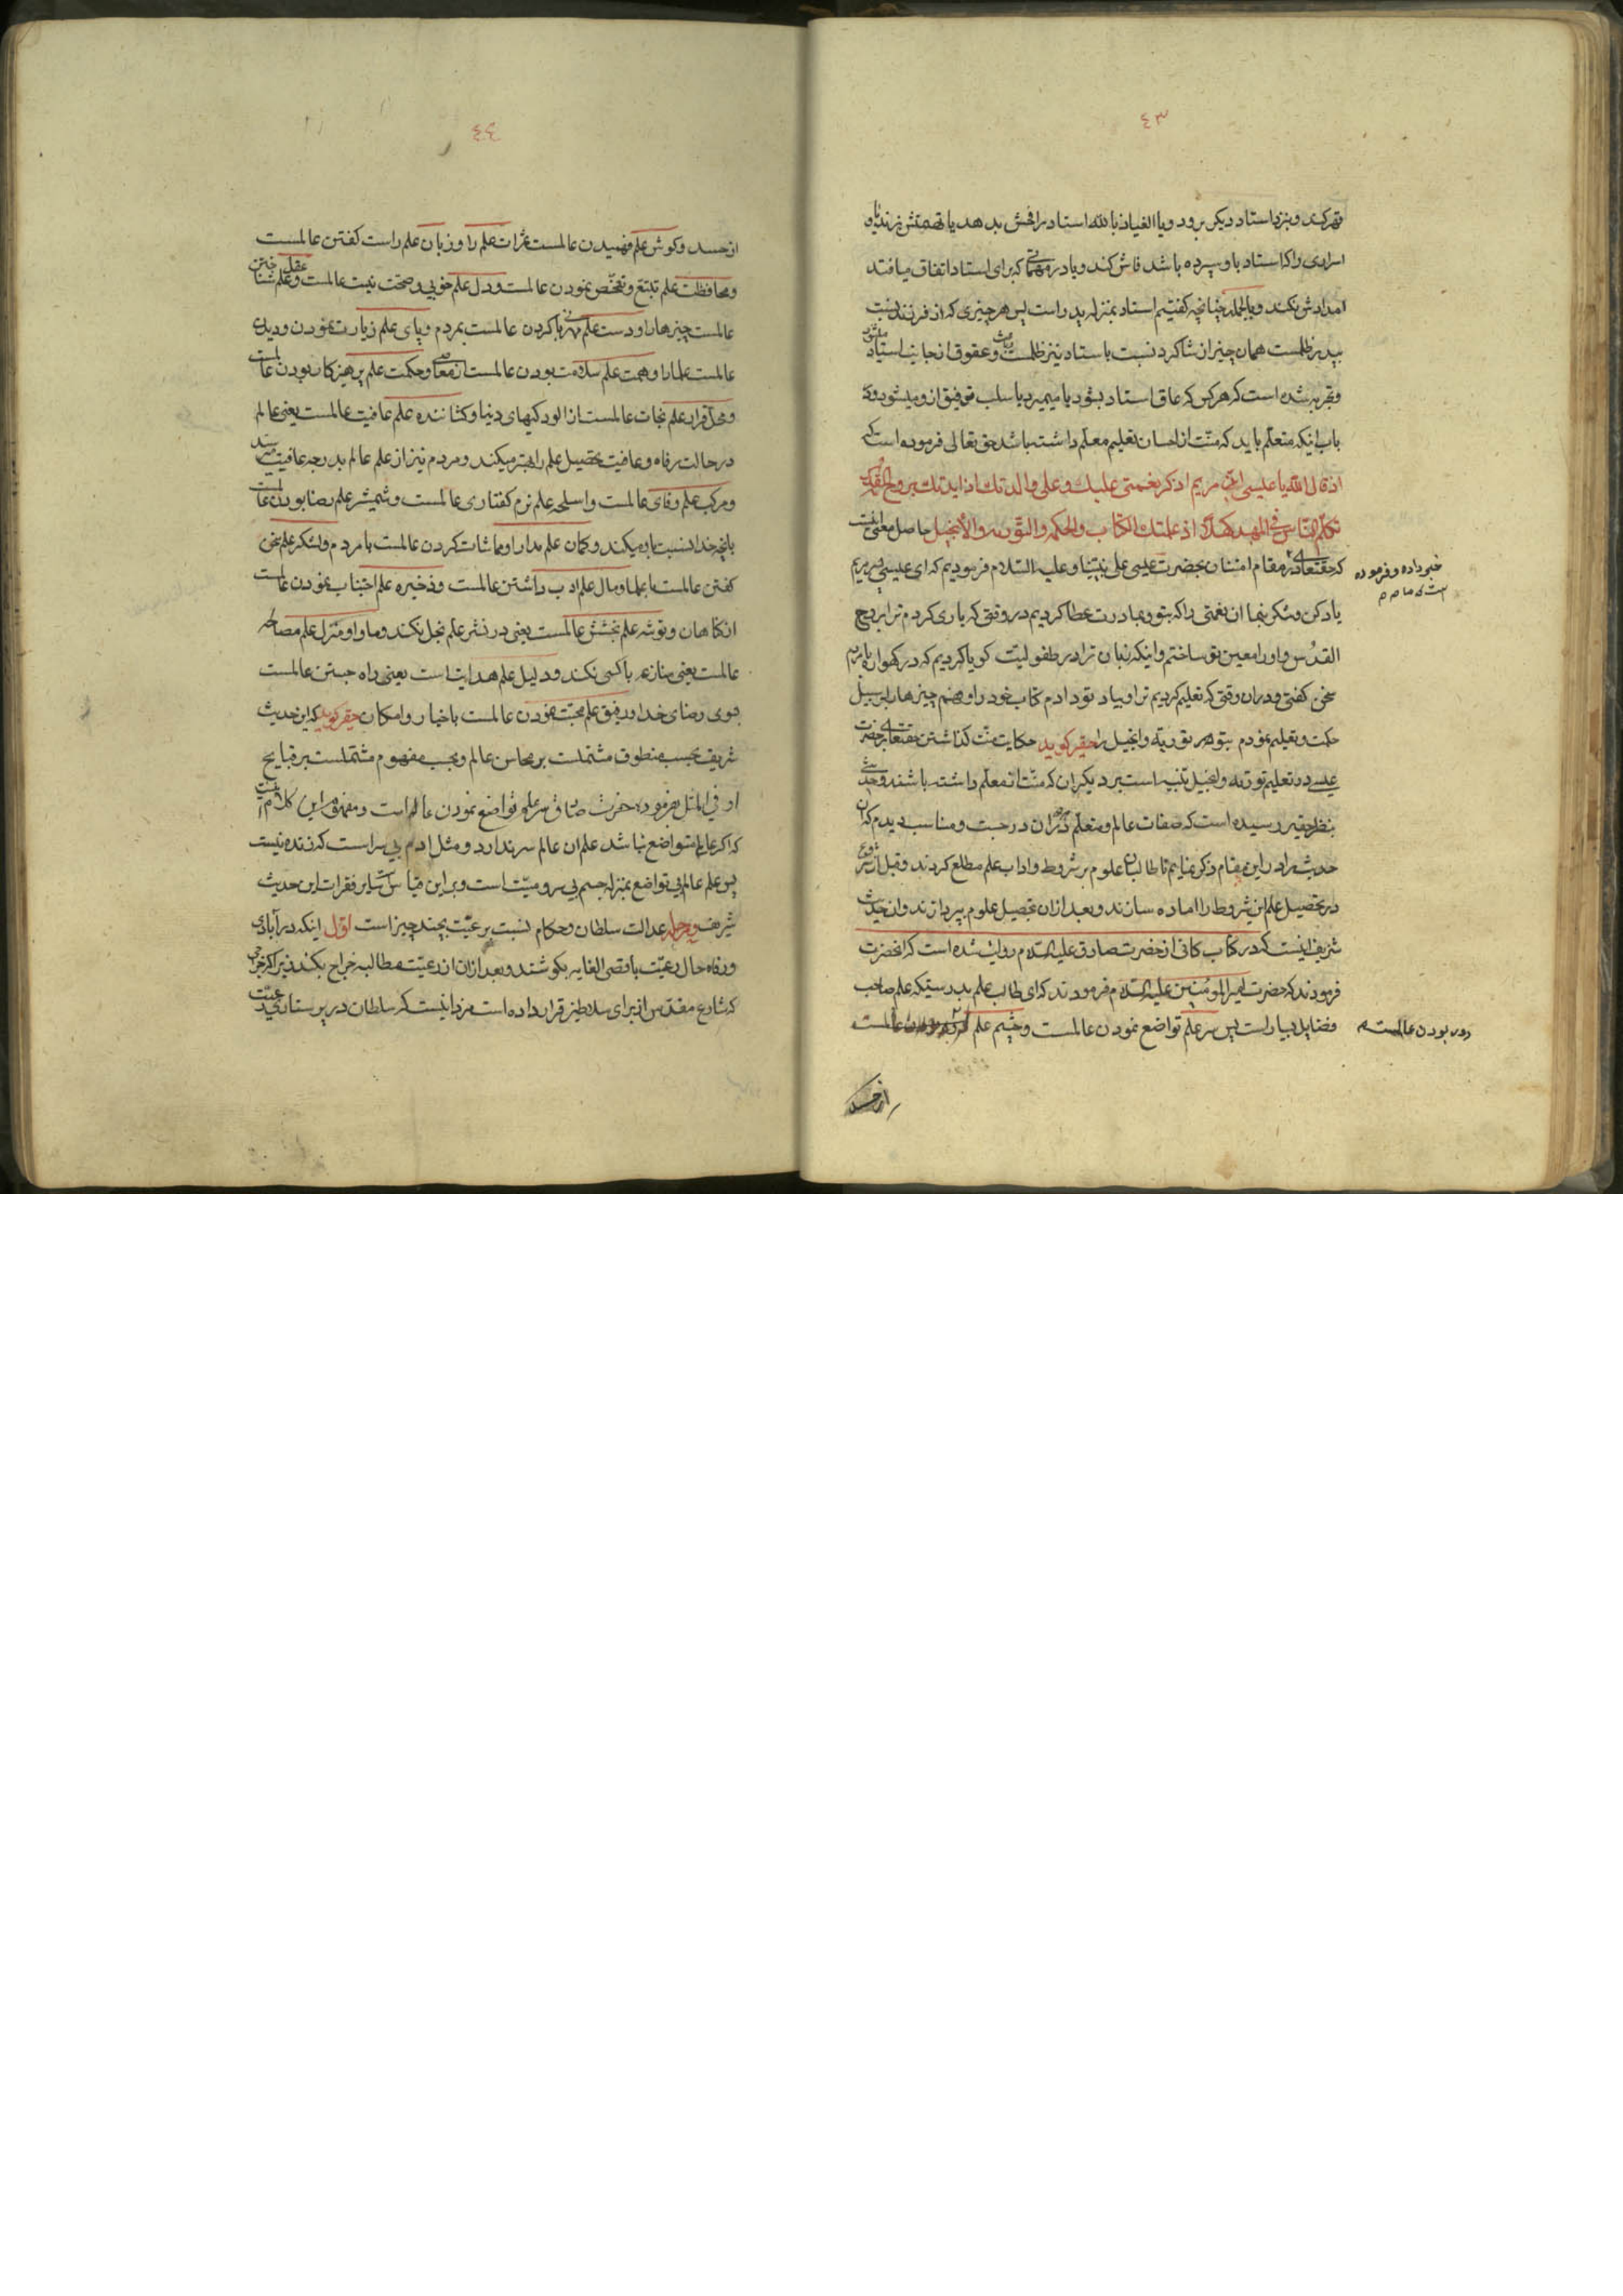 ٤٣
قهر کند و بنزد استاد دیکر برود و یا العیاذ بالله استاد را فحش بدهد یا تهمتش بزند یا
اسراری را که استاد باو سپرده باشد فاش کند و یا در مهماتی که برای استاد اتفاق میافتد
امدادش نکند و بالجمله چنانچه کفتیم استاد بمنزله پدر است پس هر چیزی که از فرزند نسبت
بپدر ظلمست همان چیز از شاکرد نسبت باستاد نیز ظلمست و عقوق از جانب استاد
و تجربه شده است که هر کس که عاق استاد بشود یا میمیرد یا سلب توفیق از و میشود و در
باب اینکه متعلم باید که منت از احسان تعلیم معلم داشته باشد حق تعالی فرموده است که
اذ قال الله یا عیسی ابن مریم اذکر نعمتی علیک و علی والدتک اذ ایدتک بروح القدس
تکلم الناس فی المهد و کهلا و اذ علمتک الکتاب والحکمه والتوریه والأنجیل حاصل معنی اینست
که حقتعالی در مقام امتنان بحضرت عیسی علی نبینا و علیه السلام فرمودیم که ای عیسی پسر مریم
خبر داده و فرموده
است که ما
یاد کن و شکر بنما ان نعمتی را که بتو و بمادرت عطا کردیم در وقتی که یاری کردم ترا بروح
القدس و او را معین تو ساختم و اینکه زبان ترا در طفولیت کویا کردیم که در کهواره با مردم
سخن کفتی و در ان وقتی که تعلیم کردیم ترا و بیاد تو دادم کتاب خود را و فهم چیزها بر سبیل
حکمت و تعلیم نمودم بتو هم توریة و انجیل را حقیر کوید حکایت منت کذاشتن حقتعالی بر حضرت
عیسی در تعلیم توریة و انجیل تنبیه است بر دیکران که منت از معلم داشته باشند و حدیثی
بنظر حقیر رسیده است که صفات عالم و متعلم در ان درجست و مناسب دیدم که ان
حدیث را در این مقام ذکر نمایم تا طالبان علوم بر شروط و اداب علم مطلع کردند و قبل از شروع
در تحصیل علم این شروط را اماده سازند و بعد از ان بتحصیل علوم بپردازند و ان حدیث
شریف اینست که در کتاب کافی از حضرت صادق علیه السلام روایت شده است که انحضرت
فرمودند که حضرت امیر المومنین علیه السلام فرمودند که ای طالب علم بدرستیکه علم صاحب
فضایل بسیار است پس سر علم تواضع نمودن عالمست و چشم علم
دور بودن عالمست
از حسد
٤٤
از حسد و کوش علم فهمیدن عالمست ثمرات علم را و زبان علم راست کفتن عالمست
و محافظت علم تتبع و تفحص نمودن عالمست و دل علم خوبی و صحت نیت عالمست و عقل علم شناختن
عالمست چیزها را و دست علم مهربانی کردن عالمست بمردم و پای علم زیارت نمودن و دیدن
عالمست علما را و همت علم سلامت بودن عالمست از معاصی و حکمت علم پرهیزکار بودن عالمست
و محل قرار علم نجات عالمست از الودکیهای دنیا و کشاننده علم عافیت عالمست یعنی عالم
در حالت رفاه و عافیت تحصیل علم را بهتر میکند و مردم نیز از علم عالم بدرجه عافیت میرسند
و مرکب علم وفای عالمست و اسلحه علم نرم کفتاری عالمست و شمشیر علم رضا بودن عالمست
بانچه خدا نسبت باو میکند و کمان علم مدارا و مماشات کردن عالمست با مردم و لشکر علم سخن
کفتن عالمست با علما و مال علم ادب داشتن عالمست و ذخیره علم اجتناب نمودن عالمست
از کناهان و توشه علم بخشش عالمست یعنی در نشر علم بخل نکند و ماوا و منزل علم مصالحه
عالمست یعنی منازعه باکسی نکند و دلیل علم هدایت است یعنی راه جستن عالمست
بسوی رضای خدا و رفیق علم محبت نمودن عالمست باخیار و امکان حقیر کوید که این حدیث
شریف بحسب منطوق مشتملست بر محاسن عالم و بحسب مفهوم مشتملست بر قبایح
او فی المثل بفرموده حضرت صادق سر علم تواضع نمودن عالم است و مفهوم این کلام اینست
که اکر عالم متواضع نباشد علم ان عالم سر ندارد و مثل ادم بی سر است که زنده نیست
پس علم عالم بی تواضع بمنزله جسم بی سر و میت است و بر این قیاس سایر فقرات این حدیث
شریف و مرحله عدالت سلطان و حکام نسبت برعیت بچند چیز است اول اینکه در آبادی
و رفاه حال رعیت باقصی الغایه بکوشند و بعد از ان از رعیت مطالبه خراج بکند زیرا که خراجی
که شارع مقدس از برای سلاطین قرار داده است مزد اینست که سلطان در پرستاری رعیت